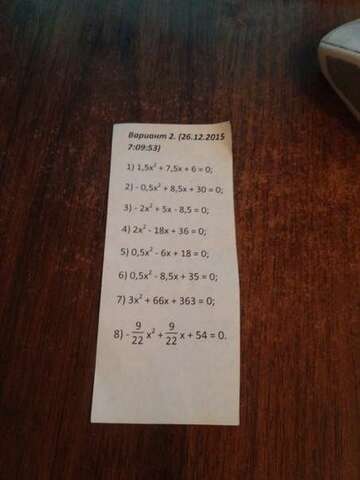 Вариант 2. (26.12.2015
7:09:53)
1) 1,5x² + 7,5x + 6 = 0;
2) - 0,5x² + 8,5x + 30 = 0;
3) - 2x² + 5x - 8,5 = 0;
4) 2x² - 18x + 36 = 0;
5) 0,5x² - 6x + 18 = 0;
6) 0,5x² - 8,5x + 35 = 0;
7) 3x² + 66x + 363 = 0;
8) - 9/22 x² + 9/22 x + 54 = 0.